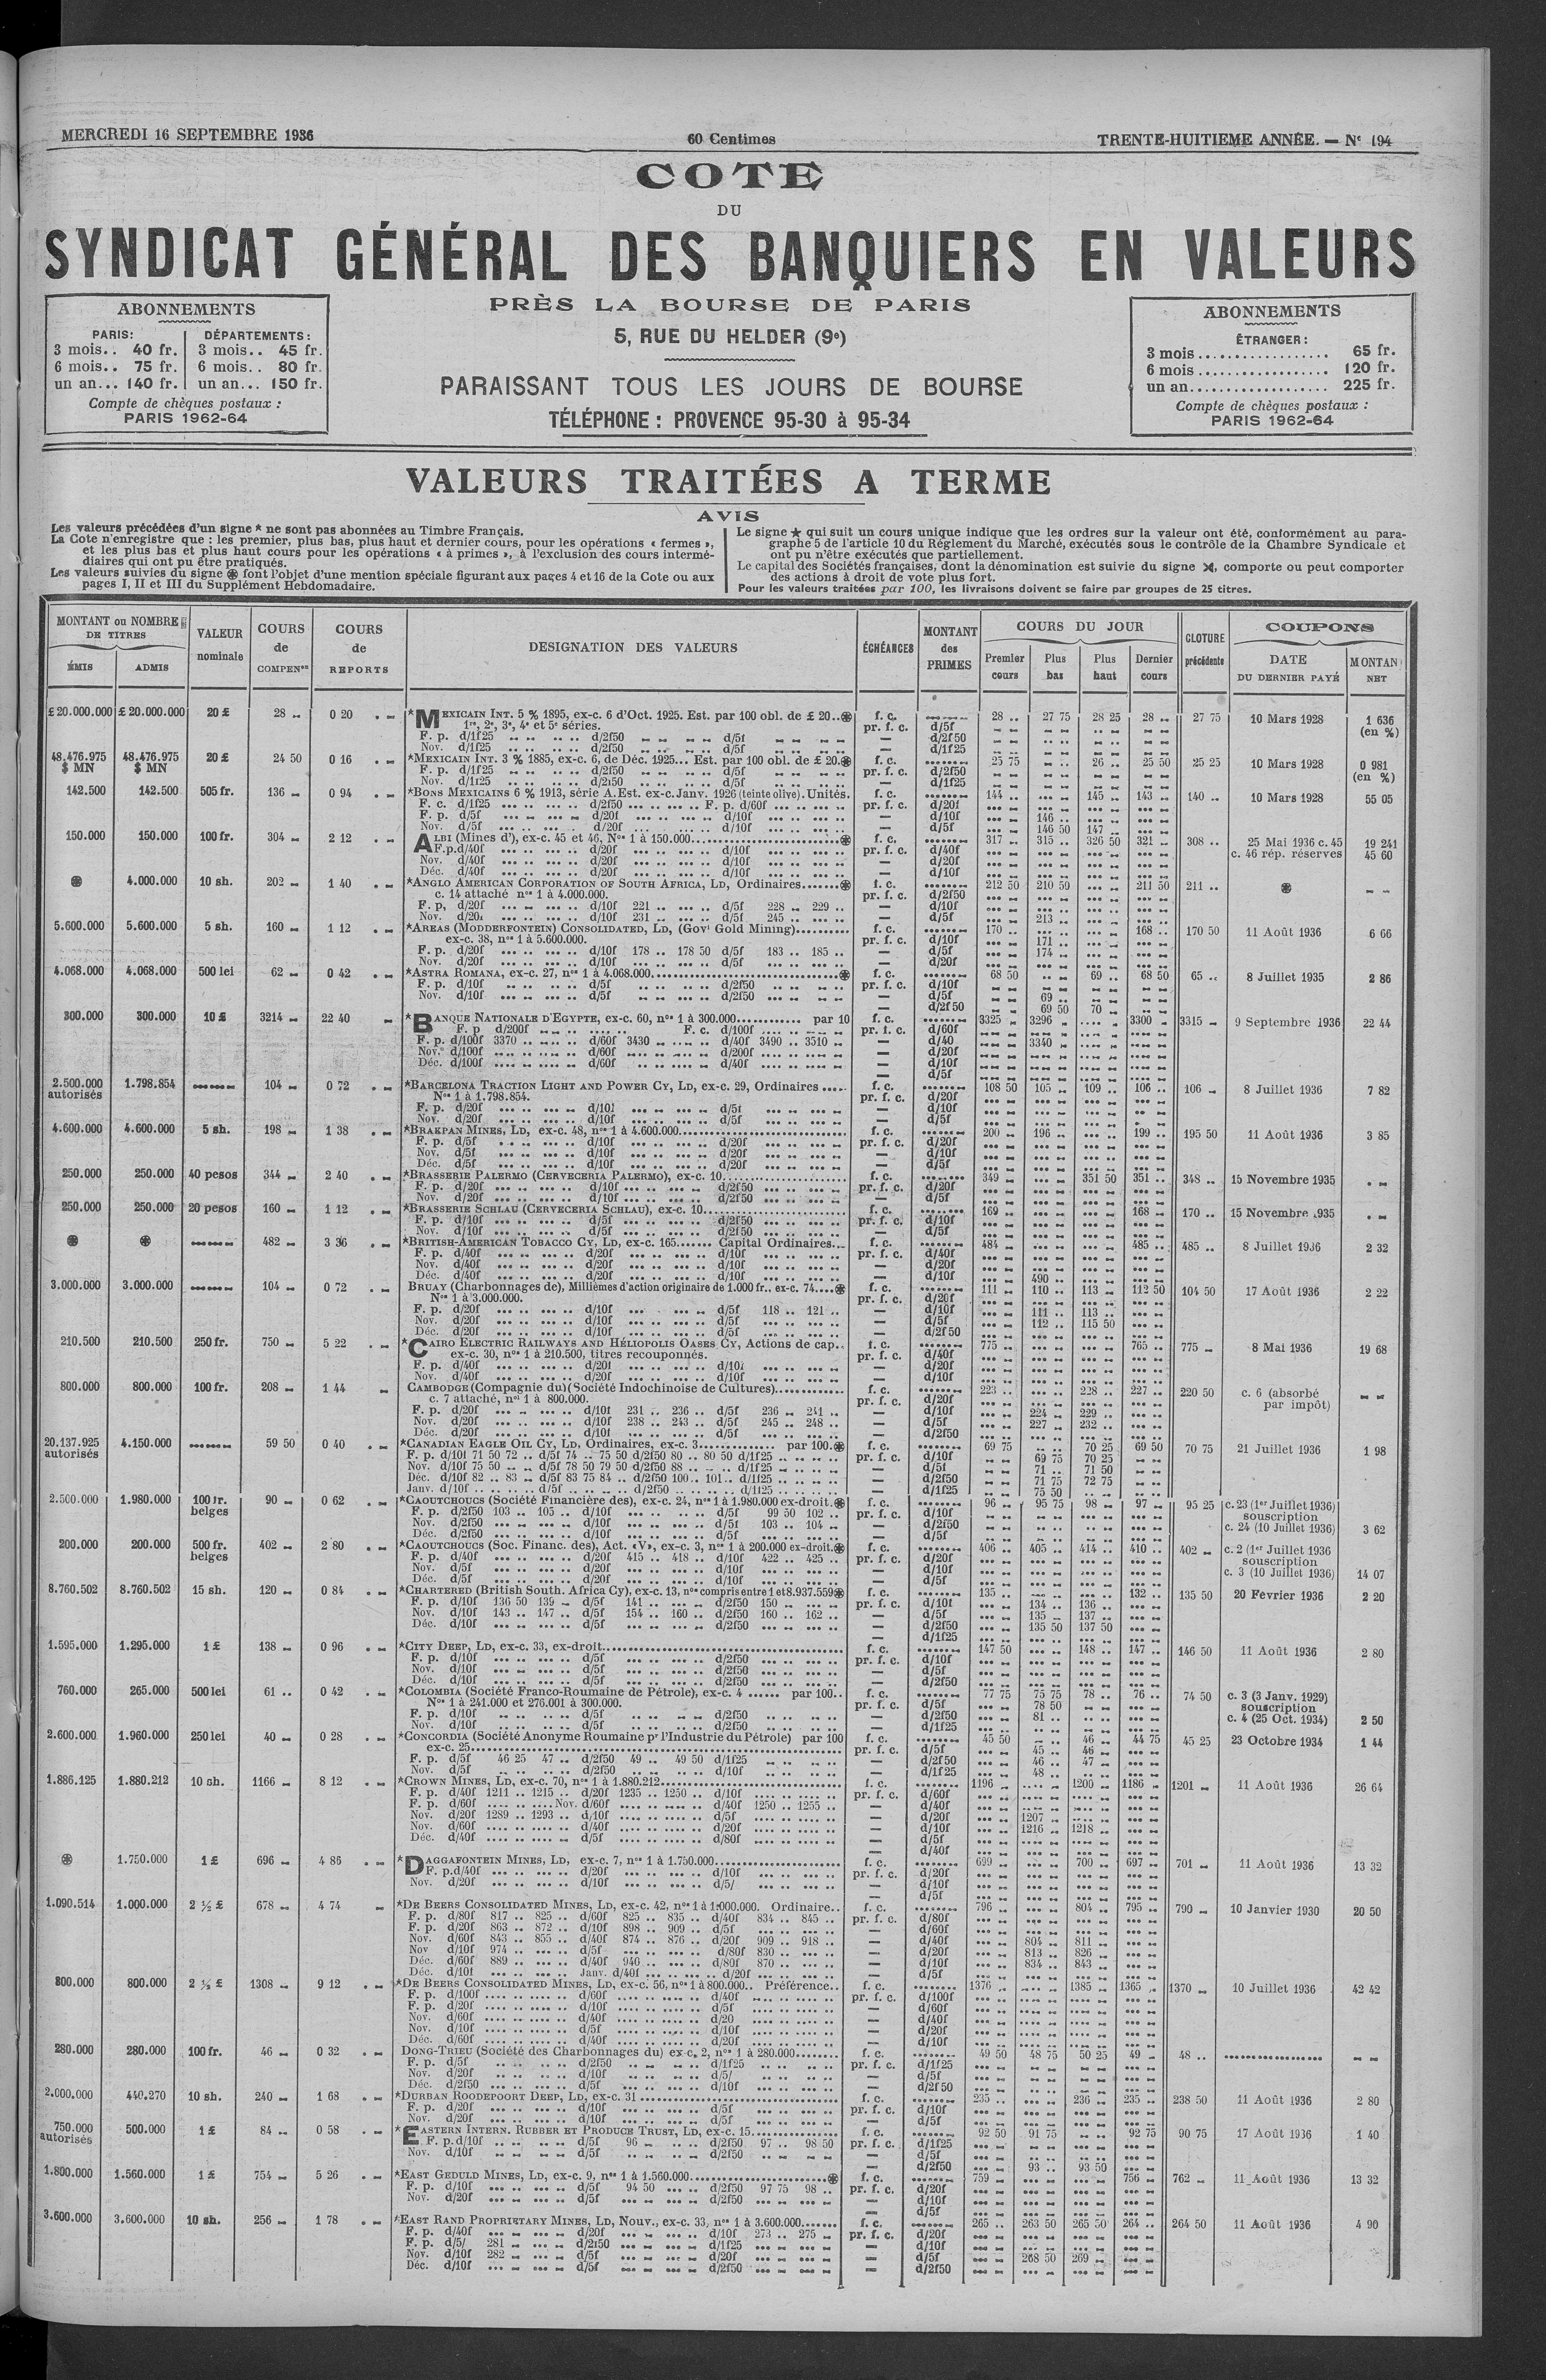 MERCREDI 16 SEPTEMBRE 1936
60 Centimes
TRENTE-HUITIEME ANNÉE. — N° 194
COTE
DU
SYNDICAT GÉNÉRAL DES BANQUIERS EN VALEURS
PRÈS LA BOURSE DE PARIS
5, RUE DU HELDER (9e)
PARAISSANT TOUS LES JOURS DE BOURSE
TÉLÉPHONE : PROVENCE 95-30 à 95-34
ABONNEMENTS
PARIS: DÉPARTEMENTS:
3 mois.. 40 fr. 3 mois.. 45 fr.
6 mois.. 75 fr. 6 mois.. 80 fr.
un an... 140 fr. un an... 150 fr.
Compte de chèques postaux :
PARIS 1962-64
ABONNEMENTS
ÉTRANGER:
3 mois.................. 65 fr.
6 mois.................. 120 fr.
un an................... 225 fr.
Compte de chèques postaux :
PARIS 1962-64
VALEURS TRAITÉES A TERME
AVIS
Les valeurs précédées d'un signe * ne sont pas abonnées au Timbre Français.
La Cote n'enregistre que : les premier, plus bas, plus haut et dernier cours, pour les opérations « fermes »,
et les plus bas et plus haut cours pour les opérations « à primes », à l'exclusion des cours intermé-
diaires qui ont pu être pratiqués.
Les valeurs suivies du signe ⊛ font l'objet d'une mention spéciale figurant aux pages 4 et 16 de la Cote ou aux
pages I, II et III du Supplément Hebdomadaire.
Le signe ★ qui suit un cours unique indique que les ordres sur la valeur ont été, conformément au para-
graphe 5 de l'article 10 du Règlement du Marché, exécutés sous le contrôle de la Chambre Syndicale et
ont pu n'être exécutés que partiellement.
Le capital des Sociétés françaises, dont la dénomination est suivie du signe ⋊, comporte ou peut comporter
des actions à droit de vote plus fort.
Pour les valeurs traitées par 100, les livraisons doivent se faire par groupes de 25 titres.
MONTANT ou NOMBRE DE TITRES
ÉMIS ADMIS
VALEUR nominale
COURS de COMPENon
COURS de REPORTS
DESIGNATION DES VALEURS
ÉCHÉANCES
MONTANT des PRIMES
COURS DU JOUR
Premier cours Plus bas Plus haut Dernier cours
CLOTURE précédente
COUPONS
DATE DU DERNIER PAYÉ
MONTAN NET
£ 20.000.000 £ 20.000.000 20 £ 28 .. 0 20 *MEXICAIN INT. 5 % 1895, ex-c. 6 d'Oct. 1925. Est. par 100 obl. de £ 20..⊛ f. c. 28 .. 27 75 28 25 28 .. 27 75 10 Mars 1928 1 636 (en %)
1re, 2e, 3e, 4e et 5e séries. pr. f. c. d/5f
F. p. d/1f25 d/2f50 d/5f — d/2f50
Nov. d/1f25 d/2f50 d/5f — d/1f25
48.476.975 $ MN 48.476.975 $ MN 20 £ 24 50 0 16 *MEXICAIN INT. 3 % 1885, ex-c. 6, de Déc. 1925... Est. par 100 obl. de £ 20.⊛ f. c. 25 75 26 .. 25 50 25 25 10 Mars 1928 0 981 (en %)
F. p. d/1f25 d/2f50 d/5f pr. f. c. d/2f50
Nov. d/1f25 d/2f50 d/5f — d/1f25
142.500 142.500 505 fr. 136 0 94 *BONS MEXICAINS 6 % 1913, série A. Est. ex-c. Janv. 1926 (teinte olive). Unités. f. c. 144 .. 145 .. 143 .. 140 .. 10 Mars 1928 55 05
F. c. d/1f25 d/2f50 F. p. d/60f pr. f. c. d/20f
F. p. d/5f d/20f d/10f — d/10f 146 ..
Nov. d/5f d/20f d/10f — d/5f 146 50 147 ..
150.000 150.000 100 fr. 304 2 12 ALBI (Mines d'), ex-c. 45 et 46, Nos 1 à 150.000 ⊛ f. c. 317 .. 315 .. 326 50 321 .. 308 .. 25 Mai 1936 c. 45 19 241
F. p. d/40f d/20f d/10f pr. f. c. d/40f c. 46 rép. réserves 45 60
Nov. d/40f d/20f d/10f — d/20f
Déc. d/40f d/20f d/10f — d/10f
⊛ 4.000.000 10 sh. 202 1 40 *ANGLO AMERICAN CORPORATION OF SOUTH AFRICA, LD, Ordinaires.......⊛ f. c. 212 50 210 50 211 50 211 .. ⊛
c. 14 attaché nos 1 à 4.000.000. pr. f. c. d/2f50
F. p. d/20f d/10f 221 d/5f 228 229 — d/10f
Nov. d/20f d/10f 231 d/5f 245 — d/5f 213
5.600.000 5.600.000 5 sh. 160 1 12 *AREAS (MODDERFONTEIN) CONSOLIDATED, LD, (Govt Gold Mining) f. c. 170 .. 168 .. 170 50 11 Août 1936 6 66
ex-c. 38, nos 1 à 5.600.000. pr. f. c. d/10f 171
F. p. d/20f d/10f 178 .. 178 50 d/5f 183 185 — d/5f 174
Nov. d/20f d/10f d/5f — d/20f
4.068.000 4.068.000 500 lei 62 0 42 *ASTRA ROMANA, ex-c. 27, nos 1 à 4.068.000 ⊛ f. c. 68 50 69 .. 68 50 65 .. 8 Juillet 1935 2 86
F. p. d/10f d/5f d/2f50 pr. f. c. d/10f
Nov. d/10f d/5f d/2f50 — d/5f 69 ..
— d/2f50 69 50 70
300.000 300.000 10 £ 3214 22 40 *BANQUE NATIONALE D'EGYPTE, ex-c. 60, nos 1 à 300.000 par 10 f. c. 3325 3296 3300 3315 9 Septembre 1936 22 44
F. p d/200f F. c. d/100f pr. f. c. d/60f
F. p. d/100f 3370 d/60f 3430 d/40f 3490 3510 — d/40 3340
Nov. d/100f d/60f d/200f — d/20f
Déc. d/100f d/60f d/40f — d/10f
— d/5f
2.500.000 autorisés 1.798.854 104 0 72 *BARCELONA TRACTION LIGHT AND POWER CY, LD, ex-c. 29, Ordinaires f. c. 108 50 105 109 .. 106 .. 106 8 Juillet 1936 7 82
Nos 1 à 1.798.854. pr. f. c. d/20f
F. p. d/20f d/10f d/5f — d/10f
Nov. d/20f d/10f d/5f — d/5f
4.600.000 4.600.000 5 sh. 198 1 38 *BRAKPAN MINES, LD, ex-c. 48, nos 1 à 4.600.000 f. c. 200 196 199 .. 195 50 11 Août 1936 3 85
F. p. d/5f d/10f d/20f pr. f. c. d/20f
Nov. d/5f d/10f d/20f — d/10f
Déc. d/5f d/10f d/20f — d/5f
250.000 250.000 40 pesos 344 2 40 *BRASSERIE PALERMO (CERVECERIA PALERMO), ex-c. 10 f. c. 349 351 50 351 .. 348 .. 15 Novembre 1935
F. p. d/20f d/10f d/2f50 pr. f. c. d/20f
Nov. d/20f d/10f d/2f50 — d/5f
250.000 250.000 20 pesos 160 1 12 *BRASSERIE SCHLAU (CERVECERIA SCHLAU), ex-c. 10 f. c. 169 168 170 .. 15 Novembre 1935
F. p. d/10f d/5f d/2f50 pr. f. c. d/10f
Nov. d/10f d/5f d/2f50 — d/5f
⊛ ⊛ 482 3 36 *BRITISH-AMERICAN TOBACCO CY, LD, ex-c. 165....... Capital Ordinaires.. f. c. 484 485 .. 485 .. 8 Juillet 1936 2 32
F. p. d/40f d/20f d/10f pr. f. c. d/40f
Nov. d/40f d/20f d/10f — d/20f
Déc. d/40f d/20f d/10f — d/10f 490
3.000.000 3.000.000 104 0 72 BRUAY (Charbonnages de), Millièmes d'action originaire de 1.000 fr., ex-c. 74....⊛ f. c. 111 110 .. 113 112 50 104 50 17 Août 1936 2 22
Nos 1 à 3.000.000. pr. f. c. d/20f
F. p. d/20f d/10f d/5f 118 .. 121 .. — d/10f 111 113
Nov. d/20f d/10f d/5f — d/5f 112 115 50
Déc. d/20f d/10f d/5f — d/2f50
210.500 210.500 250 fr. 750 5 22 *CAIRO ELECTRIC RAILWAYS AND HÉLIOPOLIS OASES CY, Actions de cap.. f. c. 775 765 .. 775 8 Mai 1936 19 68
ex-c. 30, nos 1 à 210.500, titres recouponnés. pr. f. c. d/40f
F. p. d/40f d/20f d/10f — d/20f
Nov. d/40f d/20f d/10f — d/10f
800.000 800.000 100 fr. 208 1 44 CAMBODGE (Compagnie du) (Société Indochinoise de Cultures) f. c. 223 .. 228 .. 227 .. 220 50 c. 6 (absorbé par impôt)
c. 7 attaché, nos 1 à 800.000. pr. f. c. d/20f
F. p. d/20f d/10f 231 .. 236 .. d/5f 236 241 — d/10f 224 229
Nov. d/20f d/10f 238 .. 243 .. d/5f 245 248 .. — d/5f 227 232
Déc. d/20f d/10f d/5f — d/2f50
20.137.925 autorisés 4.150.000 59 50 0 40 *CANADIAN EAGLE OIL CY, LD, Ordinaires, ex-c. 3 par 100.⊛ f. c. 69 75 70 25 69 50 70 75 21 Juillet 1936 1 98
F. p. d/10f 71 50 72 .. d/5f 74 75 50 d/2f50 80 .. 80 50 d/1f25 pr. f. c. d/10f 69 75 70 25
Nov. d/10f 75 50 d/5f 78 50 79 50 d/2f50 88 d/1f25 — d/5f 71 .. 71 50
Déc. d/10f 82 .. 83 d/5f 83 75 84 .. d/2f50 100.. 101.. d/1f25 — d/2f50 71 75 72 75
Janv. d/10f d/5f d/2f50 d/1f25 — d/1f25 75 50
2.500.000 1.980.000 100 fr. belges 90 0 62 *CAOUTCHOUCS (Société Financière des), ex-c. 24, nos 1 à 1.980.000 ex-droit.⊛ f. c. 96 95 75 98 97 95 25 c. 23 (1er Juillet 1936) souscription
F. p. d/2f50 103 .. 105 d/10f d/5f 99 50 102 .. pr. f. c. d/10f
Nov. d/2f50 d/10f d/5f 103 .. 104 — d/2f50 c. 24 (10 Juillet 1936) 3 62
Déc. d/2f50 d/10f d/5f — d/5f
200.000 200.000 500 fr. belges 402 2 80 *CAOUTCHOUCS (Soc. Financ. des), Act. «V», ex-c. 3, nos 1 à 200.000 ex-droit.⊛ f. c. 406 405 414 .. 410 .. 402 c. 2 (1er Juillet 1936 souscription
F. p. d/40f d/20f 415 .. 418 .. d/10f 422 .. 425 .. pr. f. c. d/20f
Nov. d/5f d/20f d/10f — d/10f c. 3 (10 Juillet 1936) 14 07
Déc. d/5f d/20f d/10f — d/5f
8.760.502 8.760.502 15 sh. 120 0 84 *CHARTERED (British South. Africa Cy), ex-c. 13, nos compris entre 1 et 8.937.559⊛ f. c. 135 .. 132 .. 135 50 20 Février 1936 2 20
F. p. d/10f 136 50 139 d/5f 141 d/2f50 150 pr. f. c. d/10f 134 .. 136 ..
Nov. d/10f 143 .. 147 d/5f 154 .. 160 d/2f50 160 162 .. — d/5f 135 137
Déc. d/10f d/5f d/2f50 — d/2f50 135 50 137 50
— d/1f25
1.595.000 1.295.000 1 £ 138 0 96 *CITY DEEP, LD, ex-c. 33, ex-droit f. c. 147 50 148 .. 147 .. 146 50 11 Août 1936 2 80
F. p. d/10f d/5f d/2f50 pr. f. c. d/10f
Nov. d/10f d/5f d/2f50 — d/5f
Déc. d/10f d/5f d/2f50 — d/2f50
760.000 265.000 500 lei 61 .. 0 42 *COLOMBIA (Société Franco-Roumaine de Pétrole), ex-c. 4 ...... par 100.. f. c. 77 75 75 75 78 .. 76 .. 74 50 c. 3 (3 Janv. 1929) souscription
Nos 1 à 241.000 et 276.001 à 300.000. pr. f. c. d/5f 78 50
F. p. d/10f d/5f d/2f50 — d/2f50 81 .. c. 4 (25 Oct. 1934) 2 50
Nov. d/10f d/5f d/2f50 — d/1f25
2.600.000 1.960.000 250 lei 40 0 28 *CONCORDIA (Société Anonyme Roumaine pr l'Industrie du Pétrole) par 100 f. c. 45 50 46 .. 44 75 45 25 23 Octobre 1934 1 44
ex-c. 25 pr. f. c. d/5f 45 .. 46
F. p. d/5f 46 25 47 .. d/2f50 49 .. 49 50 d/1f25 — d/2f50 46 .. 47
Nov. d/5f d/2f50 d/10f — d/1f25 48 ..
1.886.125 1.880.212 10 sh. 1166 8 12 *CROWN MINES, LD, ex-c. 70, nos 1 à 1.880.212 f. c. 1196 1200 1186 1201 11 Août 1936 26 64
F. p. d/40f 1211 .. 1215 .. d/20f 1235 .. 1250 .. d/10f pr. f. c. d/60f
F. p. d/60f Nov. d/60f d/40f 1250 .. 1255 .. — d/40f
Nov. d/20f 1289 .. 1293 .. d/10f d/5f — d/20f 1207
Nov. d/60f d/40f d/20f — d/10f 1216 1218
Déc. d/40f d/5f d/80f — d/5f
— d/40f
⊛ 1.750.000 1 £ 696 4 86 *DAGGAFONTEIN MINES, LD, ex-c. 7, nos 1 à 1.750.000 f. c. 699 700 697 701 11 Août 1936 13 32
F. p. d/40f d/20f d/10f pr. f. c. d/20f
Nov. d/20f d/10f d/5/ — d/10f
— d/5f
1.090.514 1.000.000 2 ½ £ 678 4 74 *DE BEERS CONSOLIDATED MINES, LD, ex-c. 42, nos 1 à 1.000.000. Ordinaire.. f. c. 796 804 795 790 10 Janvier 1930 20 50
F. p. d/80f 817 .. 825 .. d/60f 825 .. 835 .. d/40f 834 .. 845 .. pr. f. c. d/80f
F. p. d/20f 863 .. 872 .. d/10f 898 .. 909 .. d/5f — d/60f
Nov. d/60f 843 .. 855 .. d/40f 874 .. 876 .. d/20f 909 .. 918 .. — d/40f 804 811
Nov d/10f 974 d/5f d/80f 830 — d/20f 813 826
Déc. d/60f 889 d/40f 946 d/80f 870 — d/10f 834 843
Déc. d/10f Janv. d/40f d/20f — d/5f
800.000 800.000 2 ½ £ 1308 9 12 *DE BEERS CONSOLIDATED MINES, LD, ex-c. 56, nos 1 à 800.000.. Préférence.. f. c. 1376 1385 1365 1370 10 Juillet 1936 42 42
F. p. d/100f d/60f d/40f pr. f. c. d/100f
F. p. d/20f d/10f d/5f — d/60f
Nov. d/60f d/40f d/20 — d/40f
Nov. d/10f d/5f d/10f — d/20f
Déc. d/60f d/40f d/20f — d/10f
280.000 280.000 100 fr. 46 0 32 DONG-TRIEU (Société des Charbonnages du) ex-c. 2, nos 1 à 280.000 f. c. 49 50 48 75 50 25 49 48 ..
F. p. d/5f d/2f50 d/1f25 pr. f. c. d/1f25
Nov. d/20f d/10f d/5/ — d/5f
Déc. d/2f50 d/5f d/10f — d/2f50
2.000.000 440.270 10 sh. 240 1 68 *DURBAN ROODEPOORT DEEP, LD, ex-c. 31 f. c. 235 .. 236 235 .. 238 50 11 Août 1936 2 80
F. p. d/20f d/10f d/5f pr. f. c. d/10f
Nov. d/20f d/10f d/5f — d/5f
750.000 autorisés 500.000 1 £ 84 .. 0 58 *EASTERN INTERN. RUBBER ET PRODUCE TRUST, LD, ex-c. 15 f. c. 92 50 91 75 92 75 90 75 17 Août 1936 1 40
F. p. d/10f d/5f 96 d/2f50 97 .. 98 50 pr. f. c. d/1f25
Nov. d/10f d/5f d/2f50 — d/5f
— d/2f50 93 .. 93 50
1.800.000 1.560.000 1 £ 754 5 26 *EAST GEDULD MINES, LD, ex-c. 9, nos 1 à 1.560.000 ⊛ f. c. 759 756 762 11 Août 1936 13 32
F. p. d/10f d/5f 94 50 d/2f50 97 75 98 .. pr. f. c. d/20f
Nov. d/20f d/5f d/2f50 — d/10f
— d/5f
3.600.000 3.600.000 10 sh. 256 1 78 *EAST RAND PROPRIETARY MINES, LD, Nouv., ex-c. 33, nos 1 à 3.600.000 f. c. 265 .. 263 50 265 50 264 .. 264 50 11 Août 1936 4 90
F. p. d/40f d/20f d/10f 273 .. 275 pr. f. c. d/20f
F. p. d/5/ 281 d/2f50 d/1f25 — d/10f
Nov. d/10f 282 d/5f d/20f — d/5f 268 50 269
Déc. d/10f d/5f d/2f50 — d/2f50